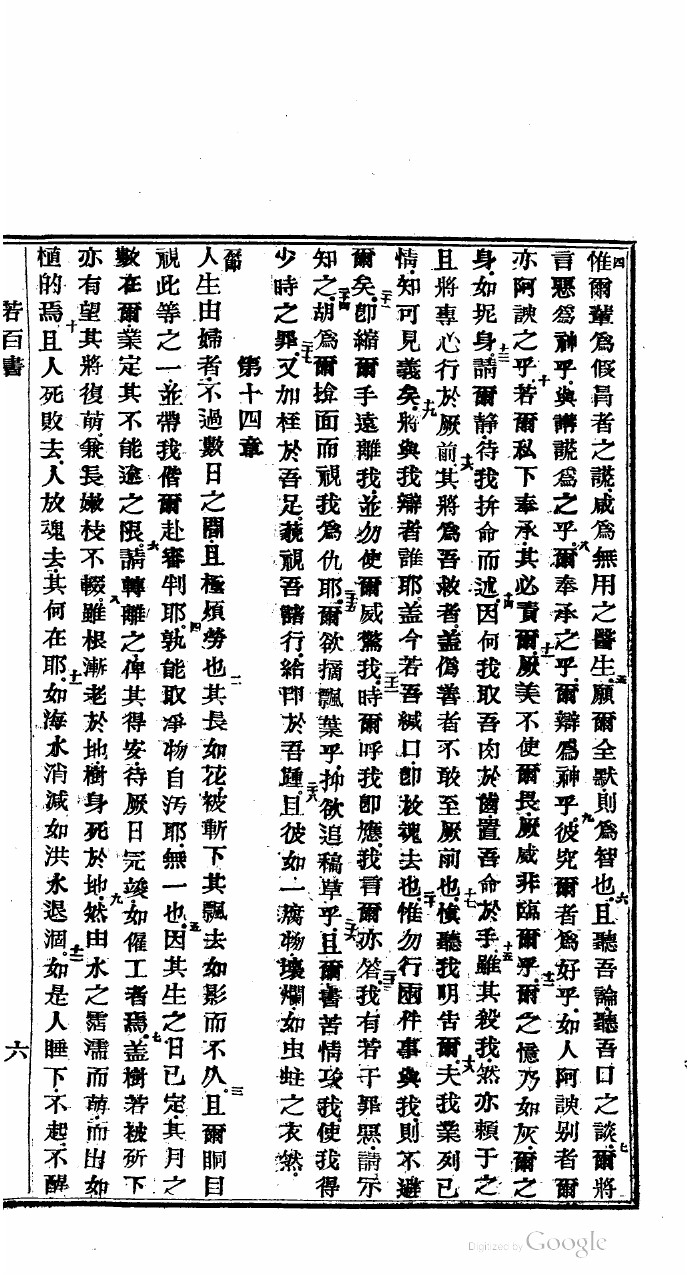 四惟爾輩爲假昌者之謊咸爲無用之醫生五願爾全默則爲智也六且聽吾論聽吾口之談七爾將
言惡爲神乎與講謊爲之乎八爾奉承之乎爾辯爲神乎九彼究爾者爲好乎如人阿諛别者爾
亦阿諛之乎十若爾私下奉承其必責爾十一厥美不使爾畏厥威非臨爾乎十二爾之憶乃如灰爾之
身如坭身十三請爾静待我拚命而述十四因何我取吾肉於齒置吾命於手十五雖其殺我然亦賴于之
且將專心行於厥前十六其將爲吾救者蓋僞善者不敢至厥前也十七慎聽我明告爾十八夫我業列已
情知可見義矣十九將與我辯者誰耶蓋今若吾緘口卽放魂去也二十惟勿行兩件事與我則不避
爾矣二十一卽縮爾手遠離我並勿使爾威驚我二十二時爾呼我卽應我言爾亦答我二十三有若干罪惡請示
知之二十四胡爲爾掩面而視我爲仇耶二十五爾欲摘飄葉乎抑欲追稿草乎二十六且爾書苦情攻我使我得
少時之罪二十七又加桎於吾足窺視吾諸行給印於吾踵二十八且彼如一腐物壞爛如虫蛀之衣然
第十四章
一人生由婦者不過數日之間且極煩勞也二其長如花被斬下其飄去如影而不久三且爾睜目
視此等之一並帶我偕爾赴審判耶四孰能取凈物自汚耶無一也五因其生之日已定其月之
數在爾業定其不能逾之限六請轉離之俾其得安待厥日完竣如僱工者焉七蓋樹若被斫下
亦有望其將復萌兼長嫩枝不輟八雖根漸老於地樹身死於地九然由水之霑濡而萌而出如
植的焉十且人死敗去人放魂去其何在耶十一如海水消減如洪水退涸十二如是人睡下不起不醒
若百書
六
Digitized by Google